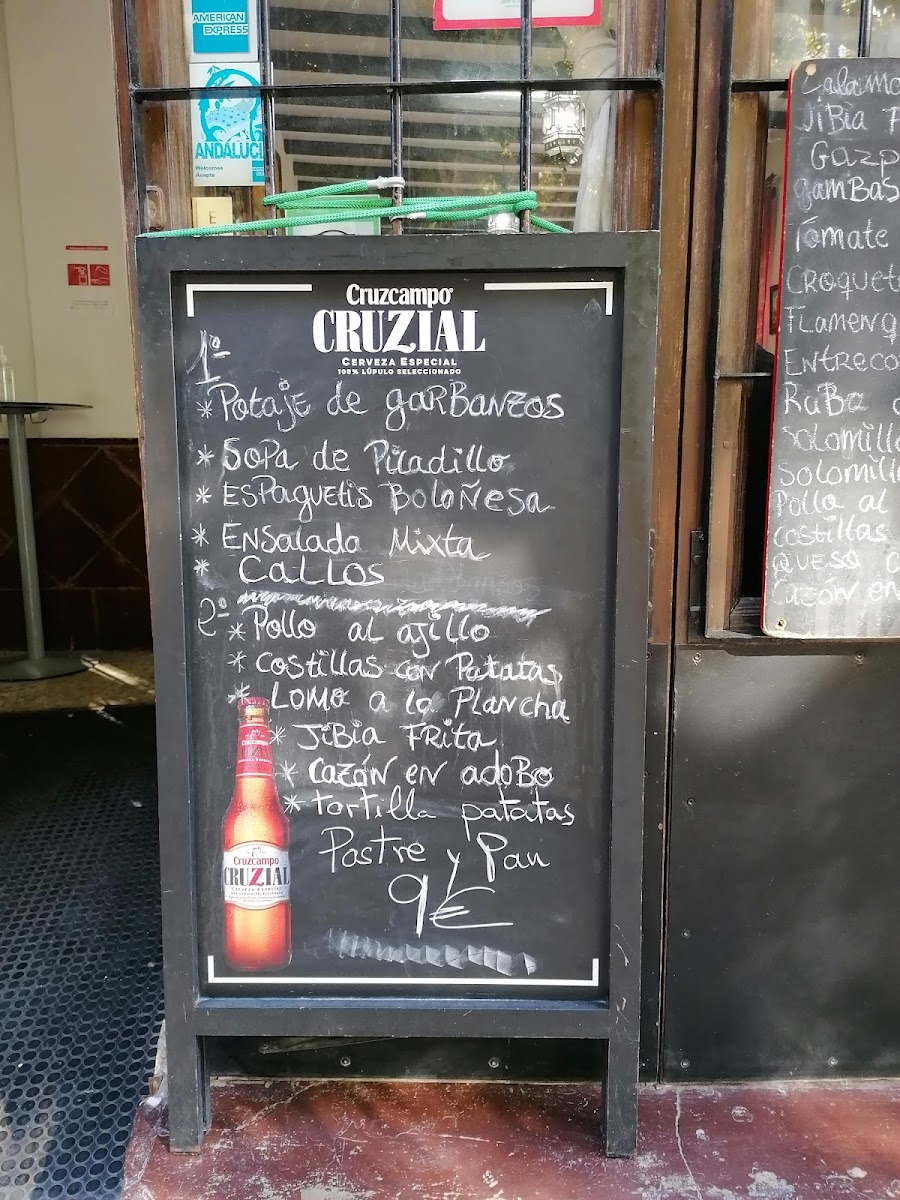 AMERICAN
EXPRESS
ANDALUCI
Cruzcampo
CRUZIAL
CERVEZA ESPECIAL
100% LÚPULO SELECCIONADO
1º
* Potaje de garbanzos
* Sopa de Picadillo
* Espaguetis Boloñesa
* Ensalada Mixta
* Callos
2º
* Pollo al ajillo
* Costillas con Patatas
* Lomo a la Plancha
* Jibia Frita
* Cazón en adobo
* tortilla patatas
Postre y Pan
9€
Cruzcampo
Cruzcampo
CRUZIAL
CERVEZA ESPECIAL
Calama
Jibia F
Gazp
gambas
Tomate
Croqueta
Flamenq
Entreco
Solomill
Solomill
Pollo al
Costillas
Queso c
Cazón en